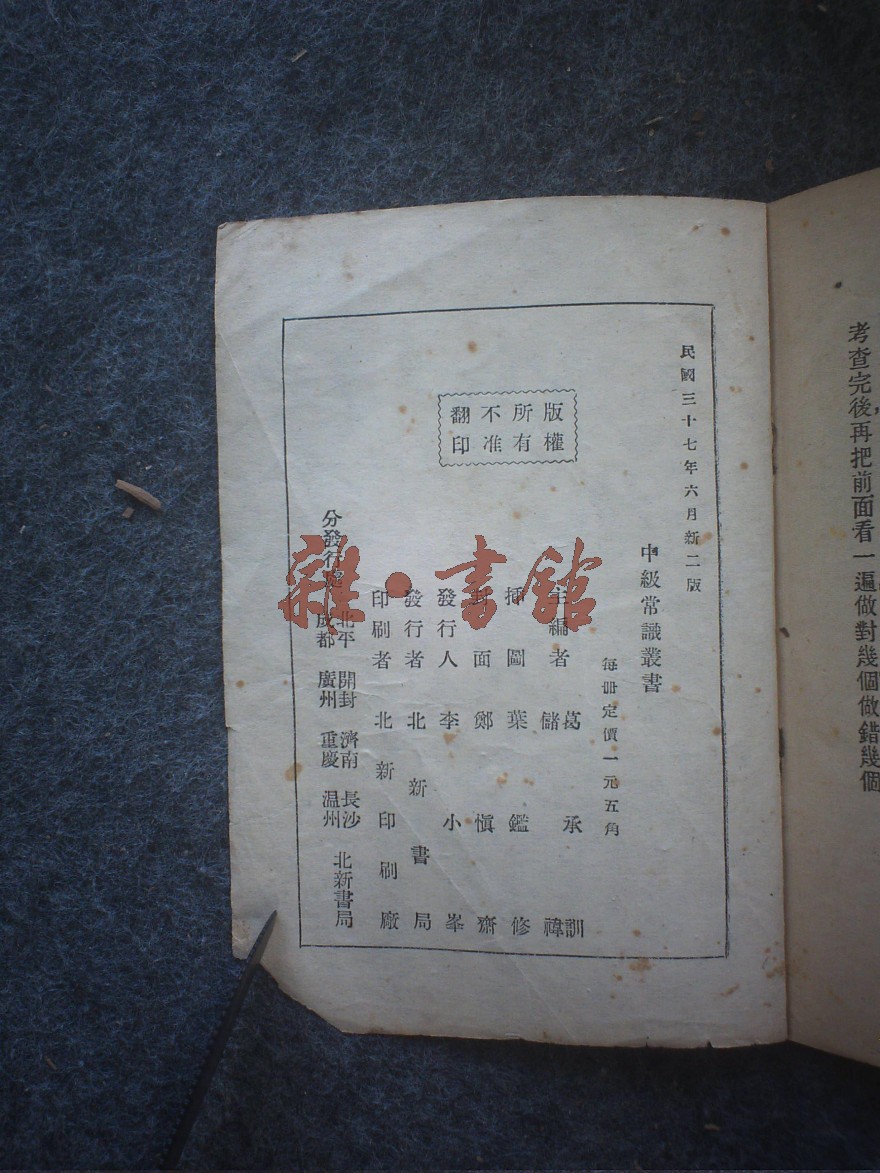 考查完後，再把前面看一遍做對幾個做錯幾個
民國三十七年六月新二版
版權
所有
不准
翻印
中級常識叢書
每冊定價一元五角
主編者 葛承訓
儲禕
插圖 葉鑑修
封面 鄭慎齋
發行人 李小峯
發行者 北新書局
印刷者 北新印刷廠
分發行處
北平 開封 濟南 長沙
成都 廣州 重慶 温州
北新書局
雜·書館